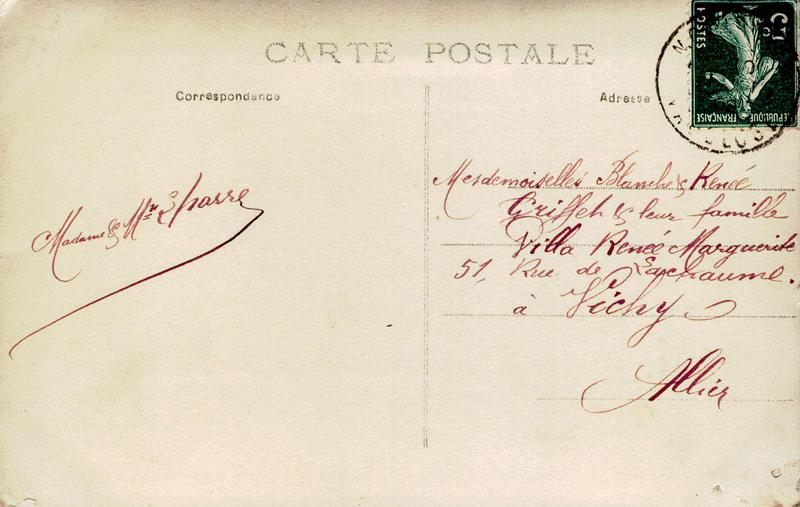 CARTE POSTALE
Correspondance
Adresse
POSTES
REPUBLIQUE FRANÇAISE
5
Madame & Mr
Mesdemoiselles Blanche & Renée
Griffet & leur famille
Villa Renée Marguerite
51, Rue de Lachaume.
à Vichy
Allier